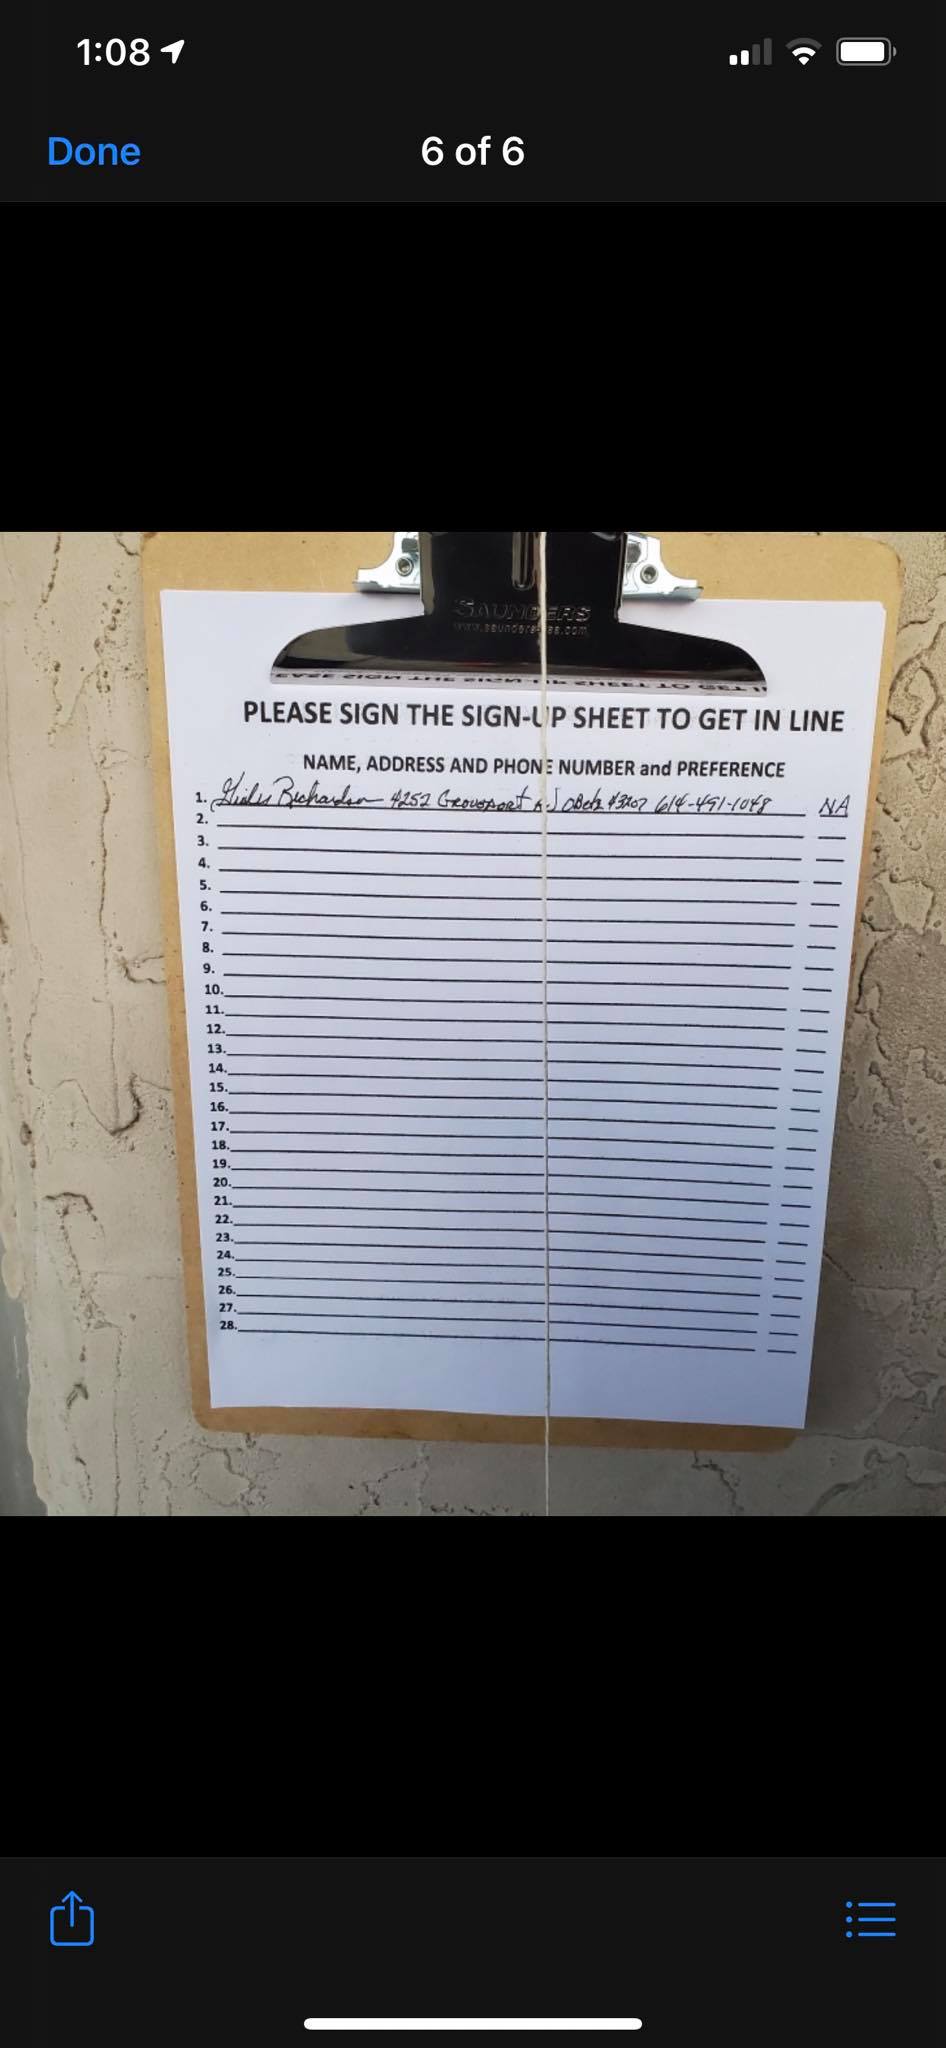 1:08
Done 6 of 6
SAUNDERS
PLEASE SIGN THE SIGN-UP SHEET TO GET IN LINE
NAME, ADDRESS AND PHONE NUMBER and PREFERENCE
1. Richardson 4252 Groveport Rd Obetz 43207 614-491-1048 NA
2.
3.
4.
5.
6.
7.
8.
9.
10.
11.
12.
13.
14.
15.
16.
17.
18.
19.
20.
21.
22.
23.
24.
25.
26.
27.
28.